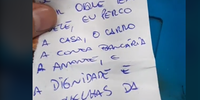 EU PERCO
A CASA, O CARRO
A CONTA BANCÁRIA
A AMANTE, E
A DIGNIDADE E
DA